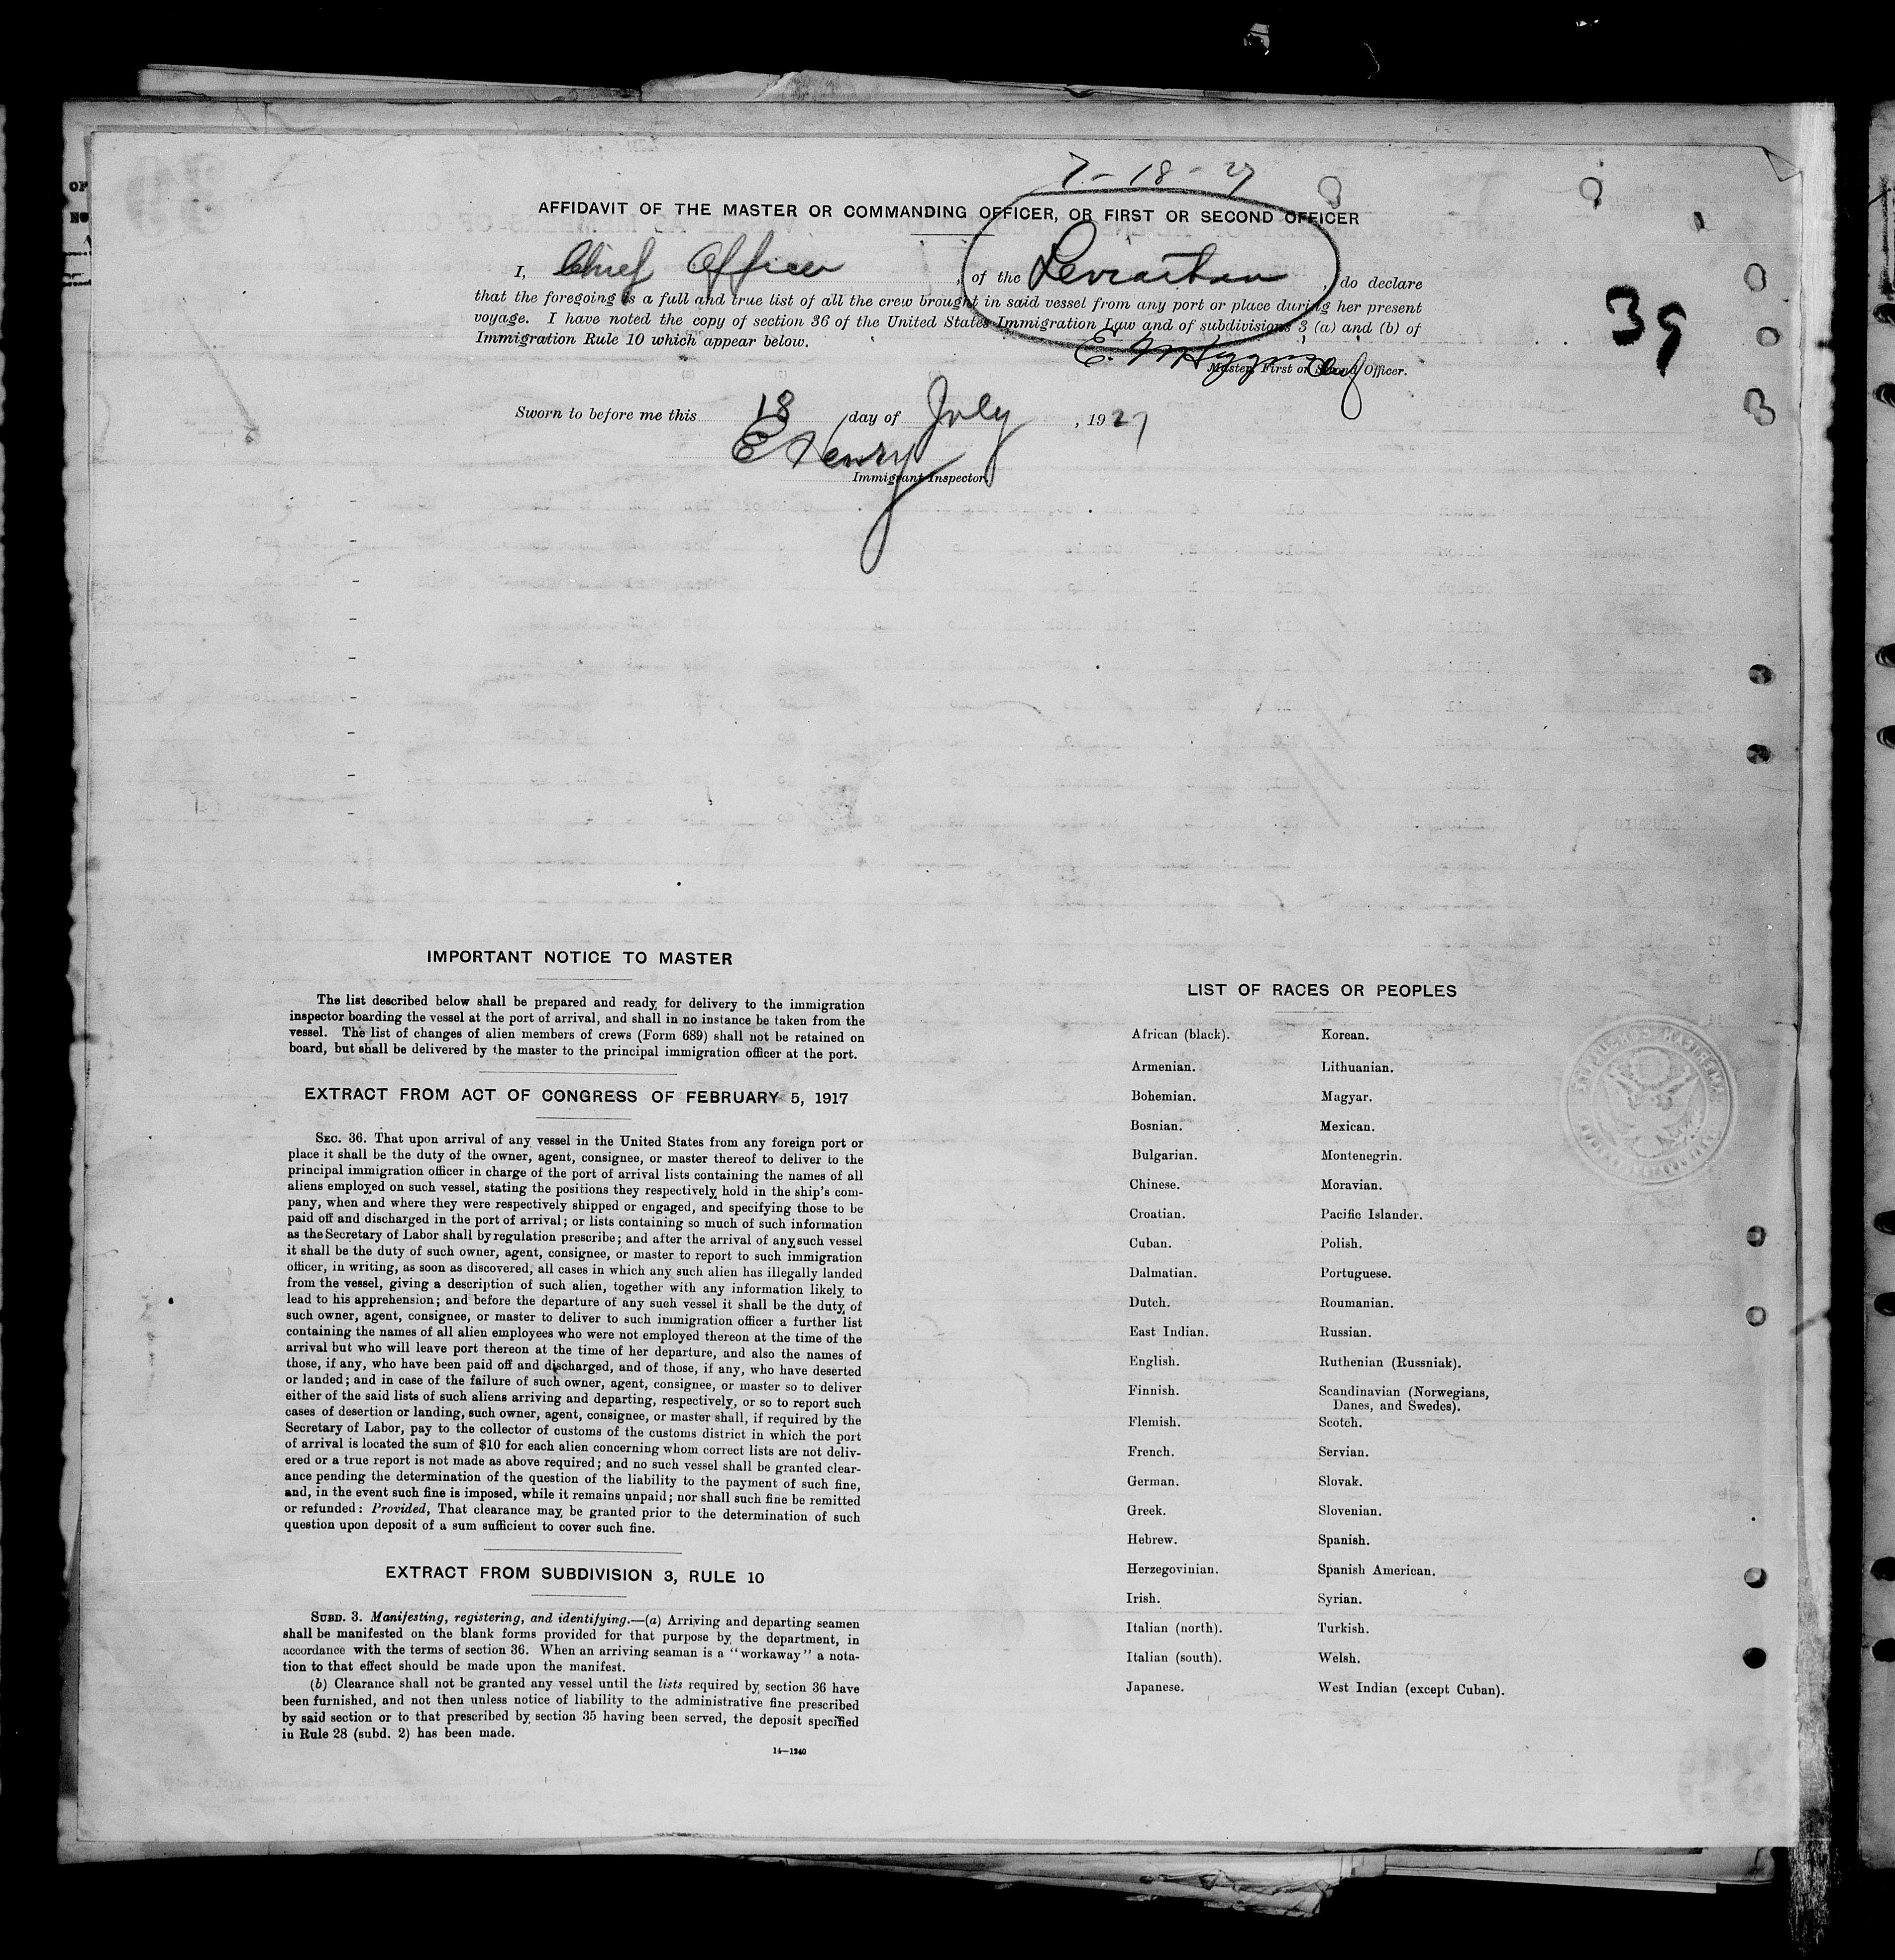 7-18-27
AFFIDAVIT OF THE MASTER OR COMMANDING OFFICER, OR FIRST OR SECOND OFFICER
I, Chief Officer, of the Leviathan, do declare
that the foregoing is a full and true list of all the crew brought in said vessel from any port or place during her present
voyage. I have noted the copy of section 36 of the United States Immigration Law and of subdivisions 3 (a) and (b) of
Immigration Rule 10 which appear below.
39
E.
Master, First or Second Officer.
Sworn to before me this 18 day of July, 1927
E Henry
Immigrant Inspector.
IMPORTANT NOTICE TO MASTER
The list described below shall be prepared and ready for delivery to the immigration
inspector boarding the vessel at the port of arrival, and shall in no instance be taken from the
vessel. The list of changes of alien members of crews (Form 689) shall not be retained on
board, but shall be delivered by the master to the principal immigration officer at the port.
EXTRACT FROM ACT OF CONGRESS OF FEBRUARY 5, 1917
SEC. 36. That upon arrival of any vessel in the United States from any foreign port or
place it shall be the duty of the owner, agent, consignee, or master thereof to deliver to the
principal immigration officer in charge of the port of arrival lists containing the names of all
aliens employed on such vessel, stating the positions they respectively hold in the ship's com-
pany, when and where they were respectively shipped or engaged, and specifying those to be
paid off and discharged in the port of arrival; or lists containing so much of such information
as the Secretary of Labor shall by regulation prescribe; and after the arrival of any such vessel
it shall be the duty of such owner, agent, consignee, or master to report to such immigration
officer, in writing, as soon as discovered, all cases in which any such alien has illegally landed
from the vessel, giving a description of such alien, together with any information likely to
lead to his apprehension; and before the departure of any such vessel it shall be the duty of
such owner, agent, consignee, or master to deliver to such immigration officer a further list
containing the names of all alien employees who were not employed thereon at the time of the
arrival but who will leave port thereon at the time of her departure, and also the names of
those, if any, who have been paid off and discharged, and of those, if any, who have deserted
or landed; and in case of the failure of such owner, agent, consignee, or master so to deliver
either of the said lists of such aliens arriving and departing, respectively, or so to report such
cases of desertion or landing, such owner, agent, consignee, or master shall, if required by the
Secretary of Labor, pay to the collector of customs of the customs district in which the port
of arrival is located the sum of $10 for each alien concerning whom correct lists are not deliv-
ered or a true report is not made as above required; and no such vessel shall be granted clear-
ance pending the determination of the question of the liability to the payment of such fine,
and, in the event such fine is imposed, while it remains unpaid; nor shall such fine be remitted
or refunded: Provided, That clearance may be granted prior to the determination of such
question upon deposit of a sum sufficient to cover such fine.
EXTRACT FROM SUBDIVISION 3, RULE 10
SUBD. 3. Manifesting, registering, and identifying.—(a) Arriving and departing seamen
shall be manifested on the blank forms provided for that purpose by the department, in
accordance with the terms of section 36. When an arriving seaman is a "workaway" a nota-
tion to that effect should be made upon the manifest.
(b) Clearance shall not be granted any vessel until the lists required by section 36 have
been furnished, and not then unless notice of liability to the administrative fine prescribed
by said section or to that prescribed by section 35 having been served, the deposit specified
in Rule 28 (subd. 2) has been made.
14—1240
LIST OF RACES OR PEOPLES
African (black).
Armenian.
Bohemian.
Bosnian.
Bulgarian.
Chinese.
Croatian.
Cuban.
Dalmatian.
Dutch.
East Indian.
English.
Finnish.
Flemish.
French.
German.
Greek.
Hebrew.
Herzegovinian.
Irish.
Italian (north).
Italian (south).
Japanese.
Korean.
Lithuanian.
Magyar.
Mexican.
Montenegrin.
Moravian.
Pacific Islander.
Polish.
Portuguese.
Roumanian.
Russian.
Ruthenian (Russniak).
Scandinavian (Norwegians,
Danes, and Swedes).
Scotch.
Servian.
Slovak.
Slovenian.
Spanish.
Spanish American.
Syrian.
Turkish.
Welsh.
West Indian (except Cuban).